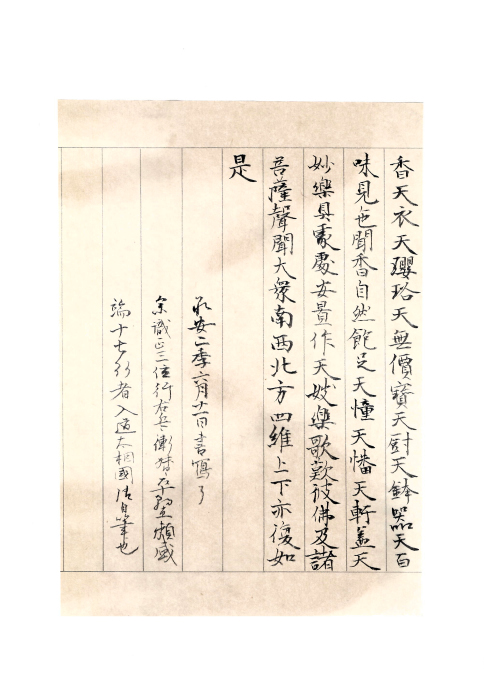 香天衣天瓔珞天無價寶天厨天鉢器天百
味見色聞香自然飽足天幢天幡天軒蓋天
妙樂具處處安置作天妓樂歌歎彼佛及諸
菩薩聲聞大衆南西北方四維上下亦復如
是
承安二季六月十一日書寫了
識正三位行右兵衛督平朝臣頼盛
端十七行者入道太相國清自筆也